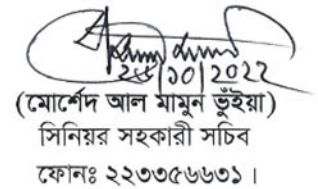 ২৫/১০/২০২২
(মোর্শেদ আল মামুন ভুঁইয়া)
সিনিয়র সহকারী সচিব
ফোনঃ ২২৩৩৫৬৬৩১।